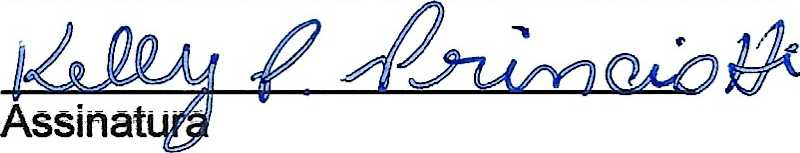 Kelly P. Principotti
Assinatura